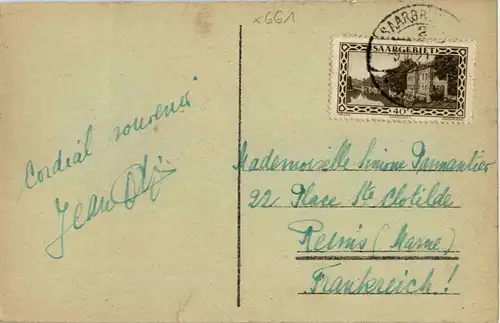 x661
SAARBR
2
SAARGEBIET
40
Cordial souvenir
Jean
Mademoiselle Simone Parmantier
22 Place Ste Clotilde
Reims (Marne)
Frankreich!